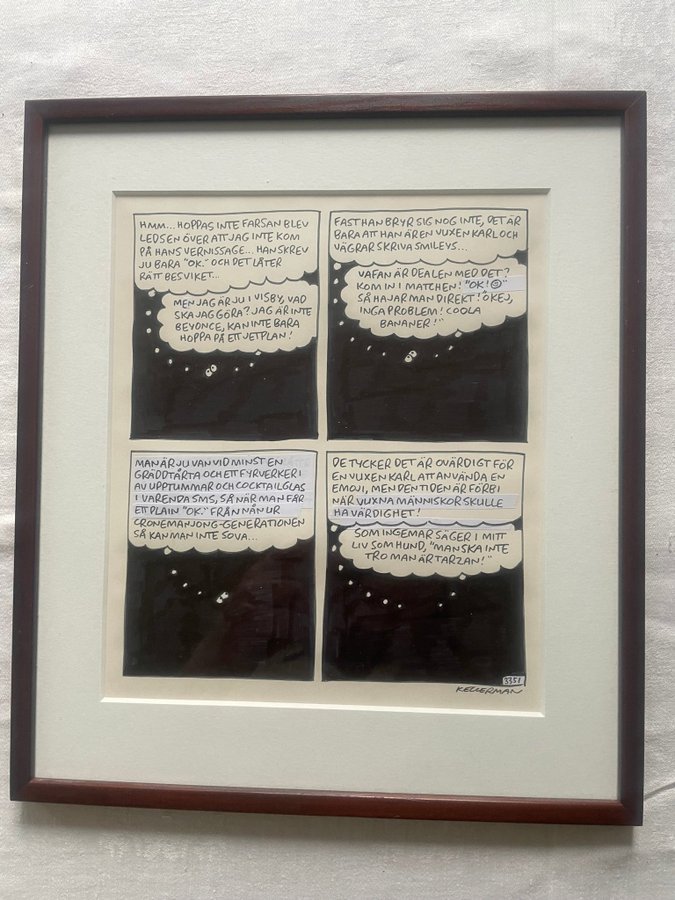 HMM... HOPPAS INTE FARSAN BLEV
LEDSEN ÖVER ATT JAG INTE KOM
PÅ HANS VERNISSAGE... HAN SKREV
JU BARA "OK." OCH DET LÅTER
RÄTT BESVIKET...
MEN JAG ÄR JU I VISBY, VAD
SKA JAG GÖRA? JAG ÄR INTE
BEYONCE, KAN INTE BARA
HOPPA PÅ ETT JETPLAN!
FAST HAN BRYR SIG NOG INTE, DET ÄR
BARA ATT HAN ÄR EN VUXEN KARL OCH
VÄGRAR SKRIVA SMILEYS...
VAFAN ÄR DEALEN MED DET?
KOM IN I MATCHEN! "OK!☺"
SÅ HAJAR MAN DIREKT! "OKEJ,
INGA PROBLEM! COOLA
BANANER!"
MAN ÄR JU VAN VID MINST EN
GRÄDDTÅRTA OCH ETT FYRVERKERI
AV UPPTUMMAR OCH COCKTAILGLAS
I VARENDA SMS, SÅ NÄR MAN FÅR
ETT PLAIN "OK." FRÅN NÅN UR
CRONEMANJONG-GENERATIONEN
SÅ KAN MAN INTE SOVA...
DE TYCKER DET ÄR OVÄRDIGT FÖR
EN VUXEN KARL ATT ANVÄNDA EN
EMOJI, MEN DEN TIDEN ÄR FÖRBI
NÄR VUXNA MÄNNISKOR SKULLE
HA VÄRDIGHET!
SOM INGEMAR SÄGER I MITT
LIV SOM HUND, "MAN SKA INTE
TRO MAN ÄR TARZAN!"
3351
KELLERMAN